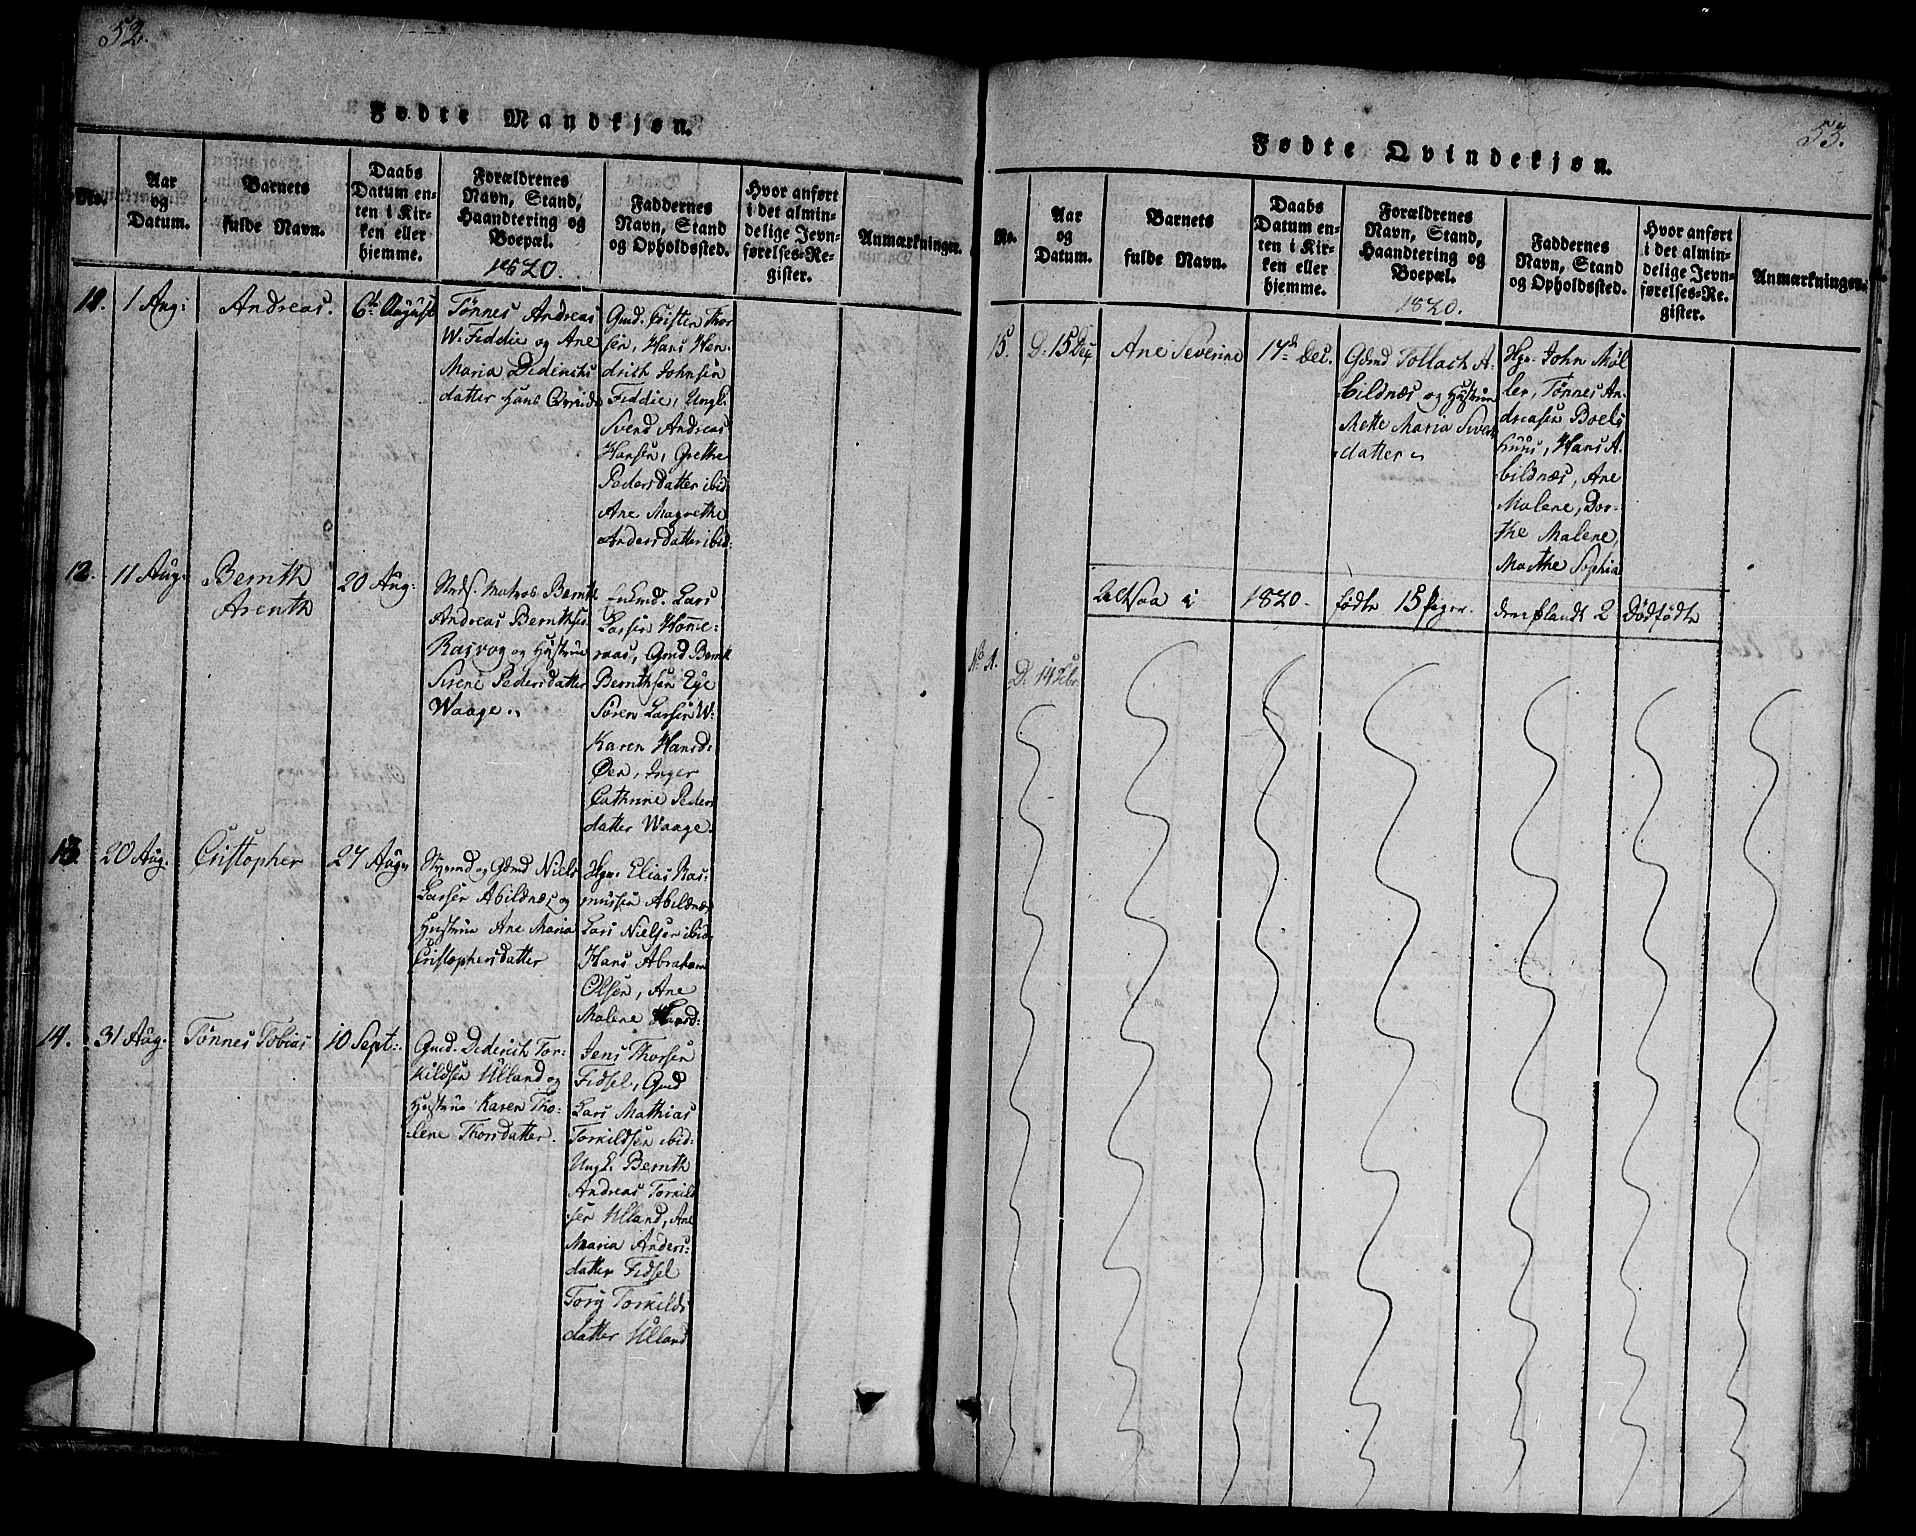 52.
Fødte Mandkjøn.
No.
Aar
og
Datum.
Barnets
fulde Navn.
Daabs
Datum en-
ten i Kir-
ken eller
hjemme.
Forældrenes
Navn, Stand,
Haandtering og
Boepæl.
1820.
Faddernes
Navn, Stand
og Opholdssted.
Hvor anført
i det almin-
delige Jevn-
førelses-Re-
gister.
Anmærkninger.
1 Aug:
Andreas.
6t August
Tønnes Andreas
W. Feddie og Ane
Maria Dederichs
datter hans Qvinde
Gmd. Cristen Thor
sen, Hans Hen-
drich Johnsen
Feddie, Ungk.
Svend Andreas
Hansen, Grethe
Pedersdatter ibid
Ane Magrethe
Andersdatter ibid:
12.
11 Aug:
Bernth
Arenth
20 Aug:
Matros Bernth
Andreas Bernthsen
Rasvog og Hustrue
Sirene Pedersdatter
Waage.
Lars
Larsen Homme-
raas, Gmd Bernt
Bernthsen Eye
Søren Larsen W:
Karen Hansd:
Øen, Inger
Cathrine Peders
datter Waage.
13.
20 Aug.
Cristopher
27 Aug:
Styrmd og Gmd Niels
Larsen Abildnæs og
Hustrue Ane Maria
Cristophersdatter
Hgr. Elias Ras-
mussen Abildnæs
Lars Nielsen ibid.
Hans Abraham
Olsen, Ane
Malene Hansd:
14.
31 Aug.
Tønnes Tobias
10 Sept:
Gmd. Dederich Tor-
kildsen Ulland og
Hustrue Karen Tho-
lene Thorsdatter.
Jens Thorsen
Fidsel, Gmd
Lars Mathias
Torkildsen ibid.
Ungk. Bernth
Andreas Torkild
sen Ulland, Ane
Maria Anders-
datter Fidsel
Torg Torkilds
datter Ulland
53.
Fødte Qvindekjøn.
No.
Aar
og
Datum.
Barnets
fulde Navn.
Daabs
Datum en-
ten i Kir-
ken eller
hjemme.
Forældrenes
Navn, Stand,
Haandtering og
Boepæl.
1820.
Faddernes
Navn, Stand
og Opholdssted.
Hvor anført
i det almin-
delige Jevn-
førelses-Re-
gister.
Anmærkninger.
15.
D. 15 Dec
Ane Severine
17de Dec.
Gmd Tollach A-
bildnæs og Hustrue
Mette Maria Siverts
datter
Hgr. John Møl-
ler, Tønnes An-
dreasen Boels
huus, Hans A-
bildnæs, Ane
Malene, Dor-
the Malene,
Marthe Sophia
Altsaa i
1820.
fødte 15 Piger.
deriblandt 2
Dødfødte